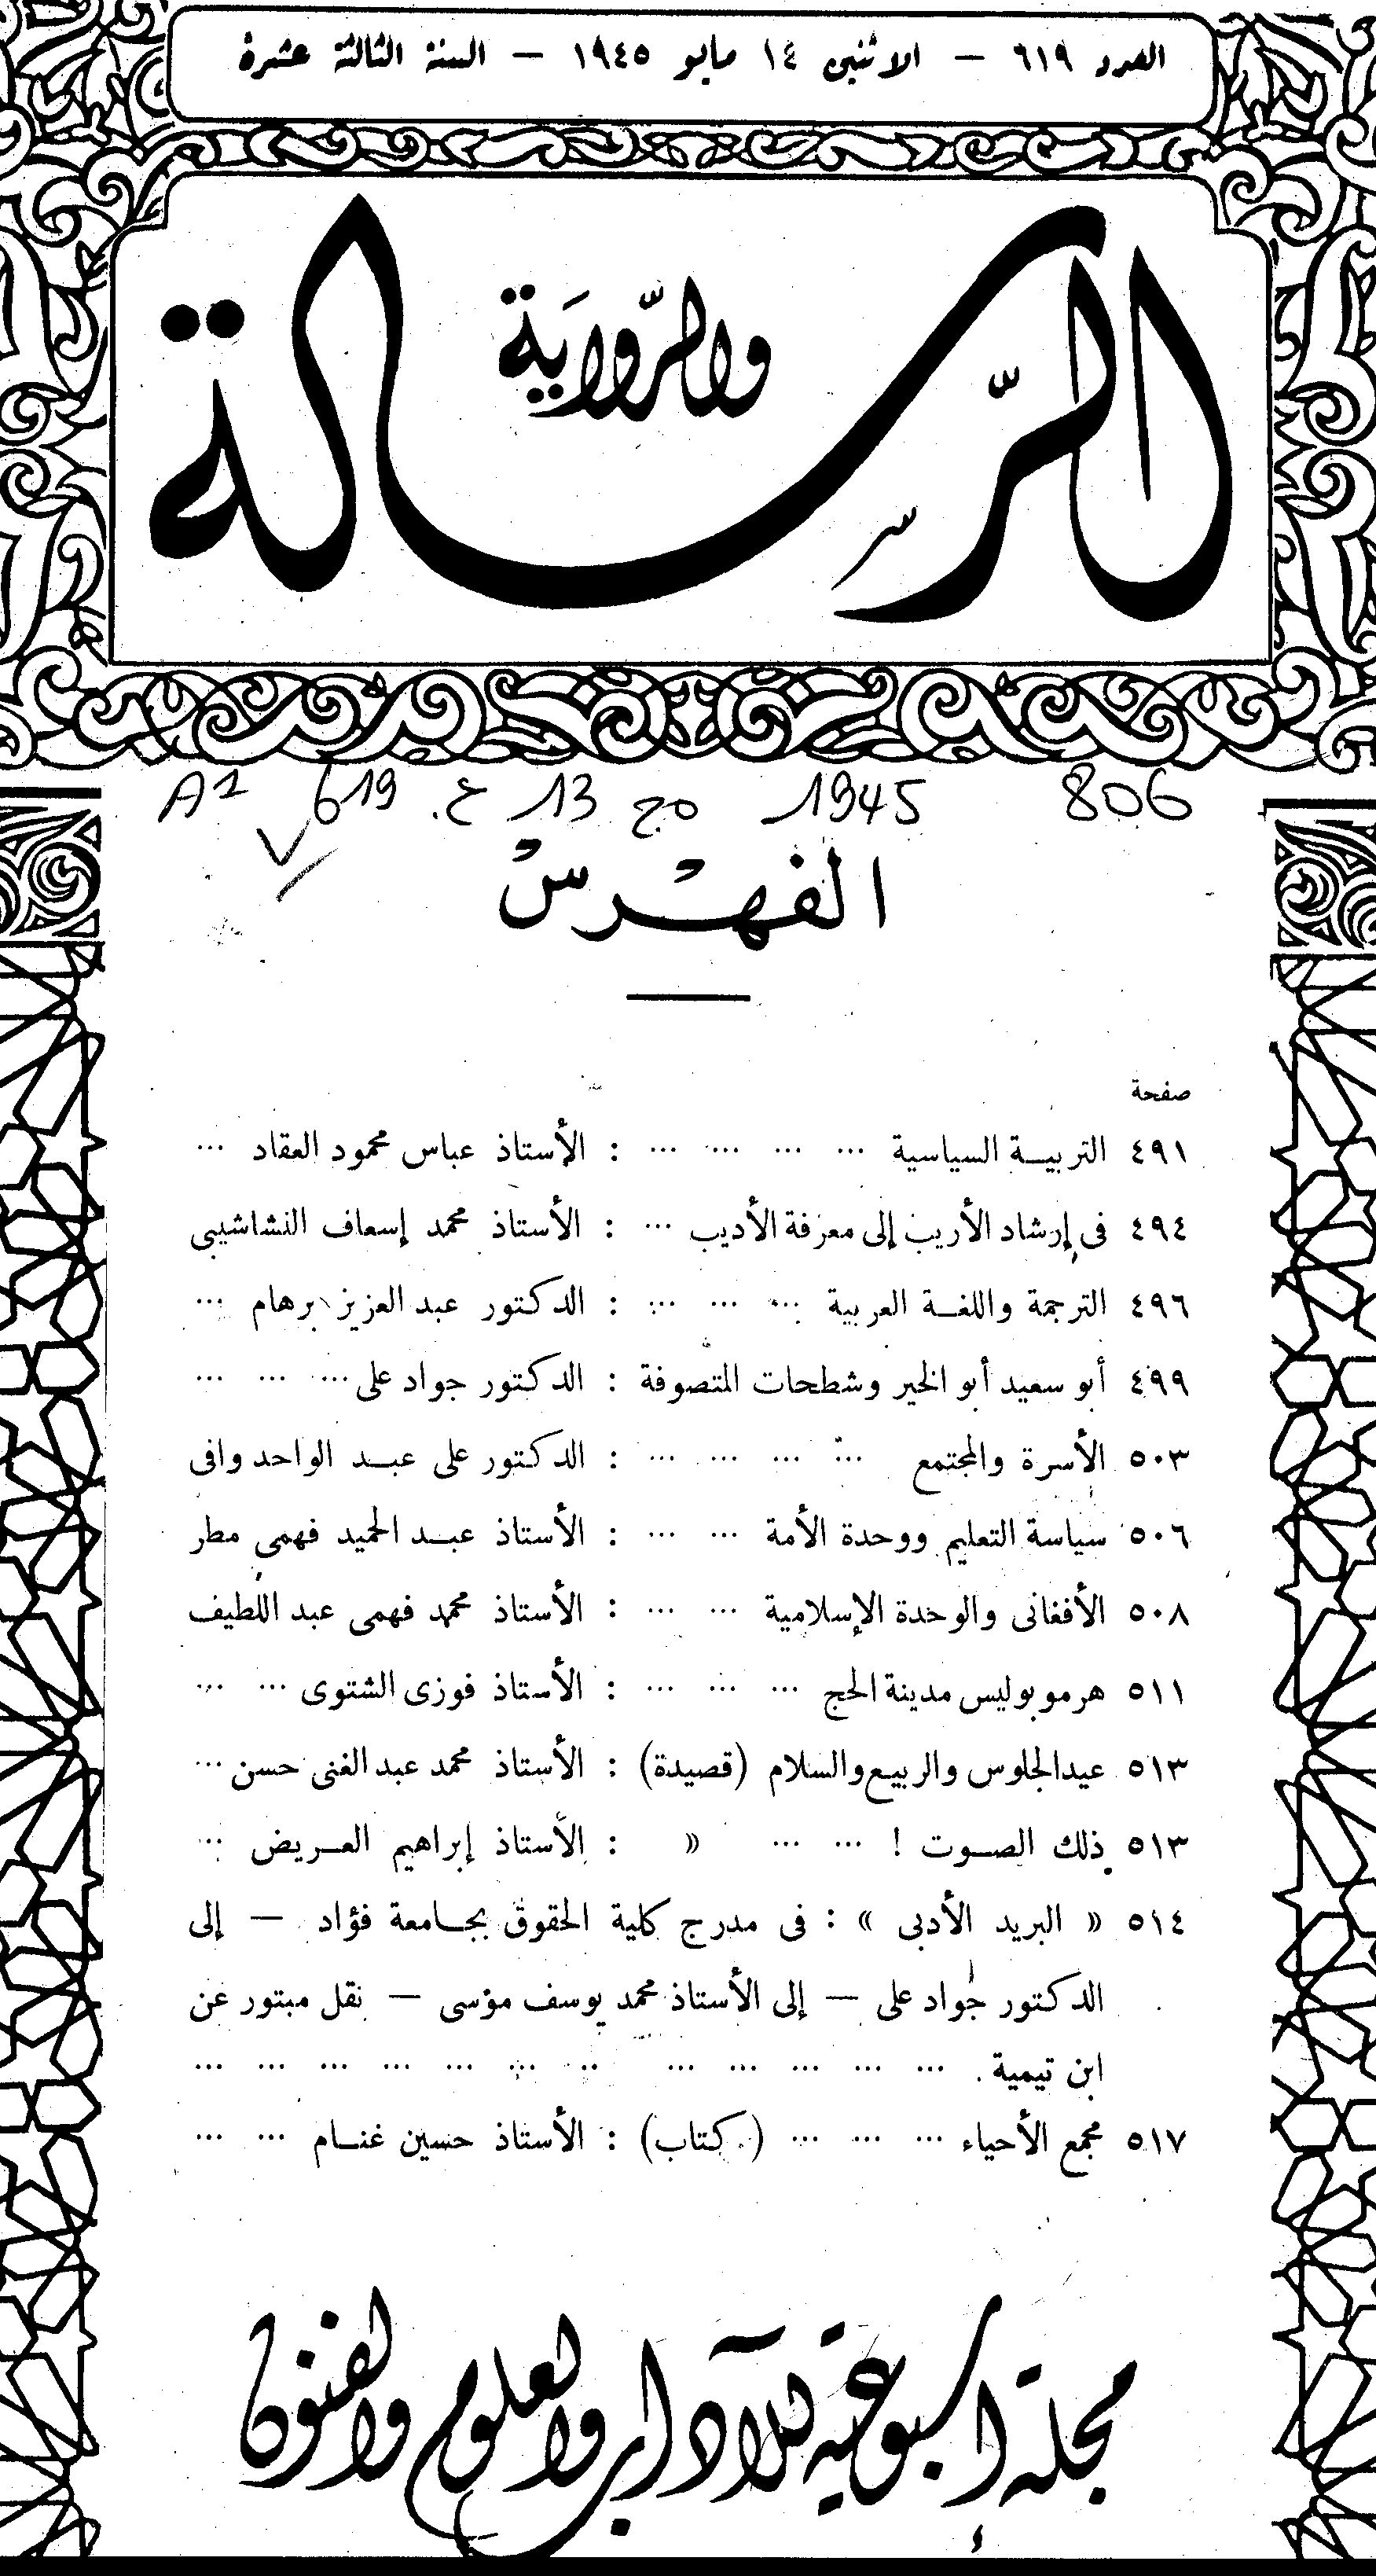 العدد ٦١٩ — الاثنين ١٤ مايو ١٩٤٥ — السنة الثالثة عشرة
الرسالة
والرواية
A2 619 ع. 13 مج 1945 806
الفهرس
صفحة
٤٩١ التربية السياسية ... ... ... ... : الأستاذ عباس محمود العقاد ...
٤٩٤ فى إرشاد الأريب إلى معرفة الأديب ... : الأستاذ محمد إسعاف النشاشيبى
٤٩٦ الترجمة واللغة العربية ... ... ... : الدكتور عبد العزيز برهام ...
٤٩٩ أبو سعيد أبو الخير وشطحات المتصوفة : الدكتور جواد على ... ... ...
٥٠٣ الأسرة والمجتمع ... ... ... ... : الدكتور على عبد الواحد وافى
٥٠٦ سياسة التعليم ووحدة الأمة ... ... : الأستاذ عبد الحميد فهمى مطر
٥٠٨ الأفغانى والوحدة الإسلامية ... ... : الأستاذ محمد فهمى عبد اللطيف
٥١١ هرموبوليس مدينة الحج ... ... ... : الأستاذ فوزى الشتوى ... ...
٥١٣ عيد الجلوس والربيع والسلام (قصيدة) : الأستاذ محمد عبد الغنى حسن ...
٥١٣ ذلك الصوت ! ... ... » : الأستاذ إبراهيم العريض ...
٥١٤ « البريد الأدبى » : فى مدرج كلية الحقوق بجامعة فؤاد — إلى
الدكتور جواد على — إلى الأستاذ محمد يوسف موسى — نقل مبتور عن
ابن تيمية . ... ... ... ... ... ... ... ... ... ... ... ...
٥١٧ مجمع الأحياء ... ... ... (كتاب) : الأستاذ حسين غنام ... ...
مجلة أسبوعية للآداب والعلوم والفنون